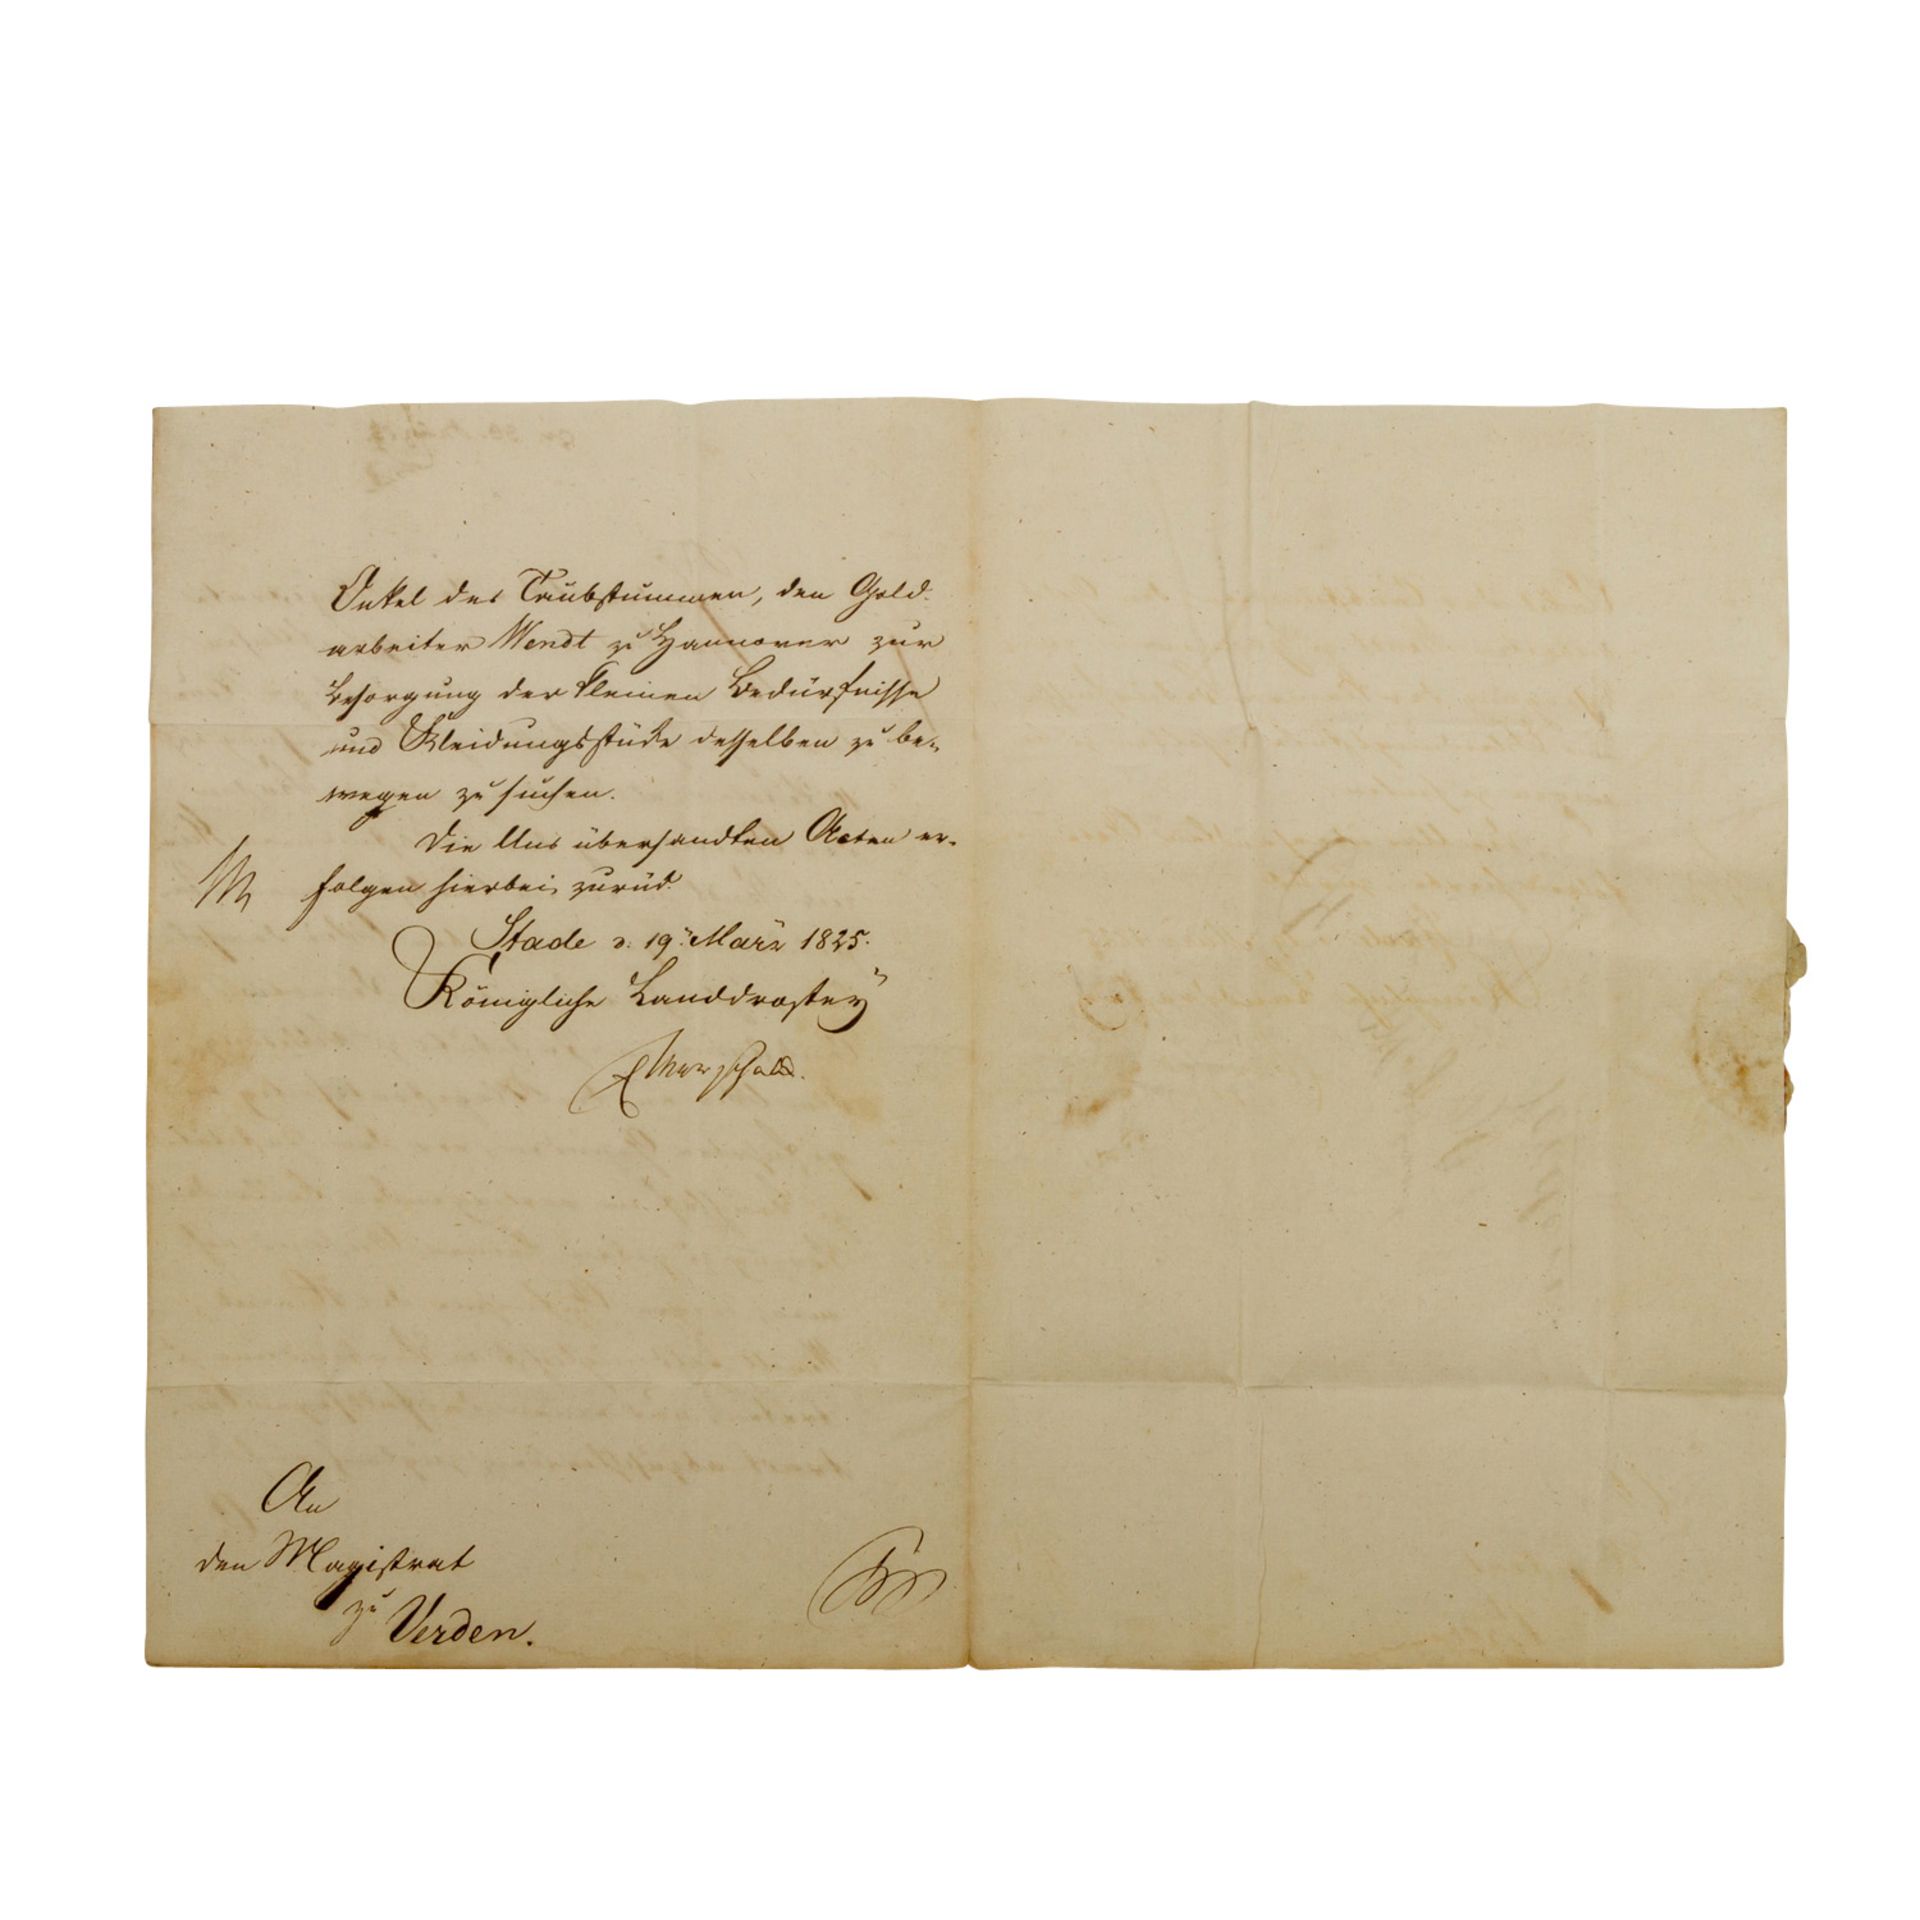 Onkel des Taubstummen, den Gold-
arbeiter Wendt zu Hannover zur
Besorgung der kleinen Bedürfnisse
und Kleidungsstücke desselben zu be-
wegen zu suchen.
Die Uns übersandten Acten er-
folgen hierbei zurück.
Stade d. 19. März 1825.
Königliche Landdrostey
Marschalck.
An
den Magistrat
zu Verden.